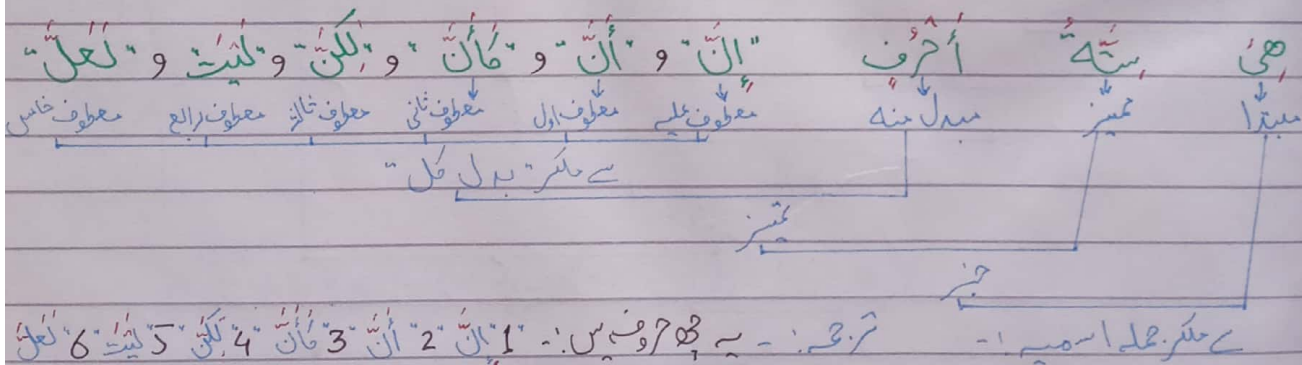 هِىَ سِتَّةُ أَحْرُفٍ "إِنَّ" و "أَنَّ" و "كَأَنَّ" و "لٰكِنَّ" و "لَيْتَ" و "لَعَلَّ"
مبتدا ممیز مبدل منه معطوف علیہ معطوف اول معطوف ثانی معطوف ثالث معطوف رابع معطوف خامس
سے ملکر "بدل کل"
تمیز
خبر
سے ملکر جملہ اسمیہ :- ترجمہ :- یہ چھ حروف ہیں :- 1 "إِنَّ" 2 "أَنَّ" 3 "كَأَنَّ" 4 "لٰكِنَّ" 5 "لَيْتَ" 6 "لَعَلَّ"